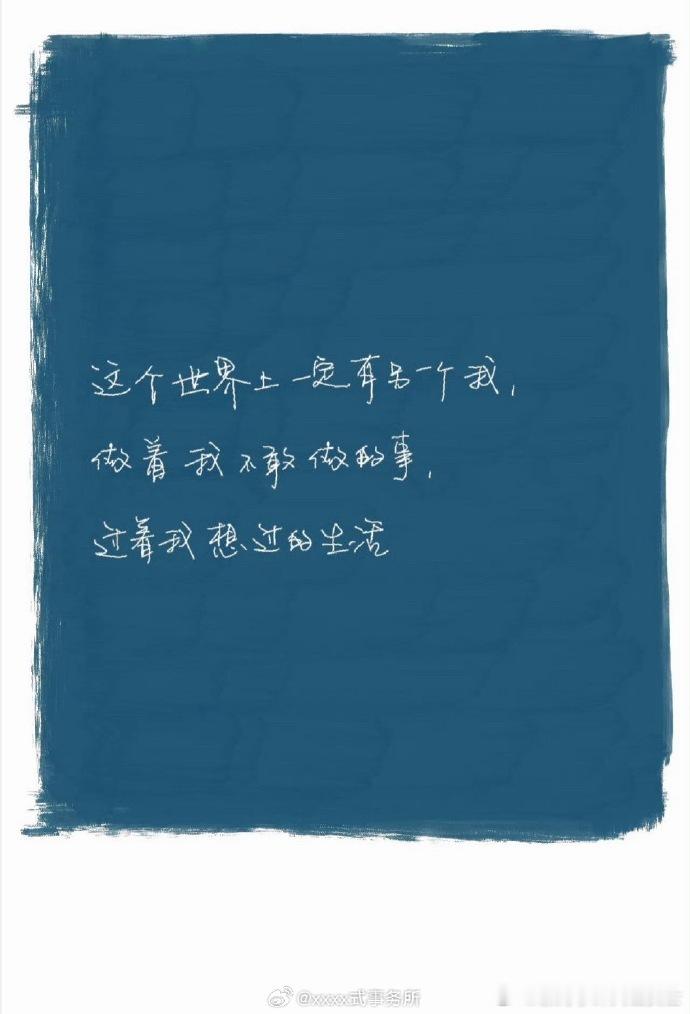 这个世界上一定有另一个我，
做着我不敢做的事，
过着我想过的生活
@xxxxx式事务所